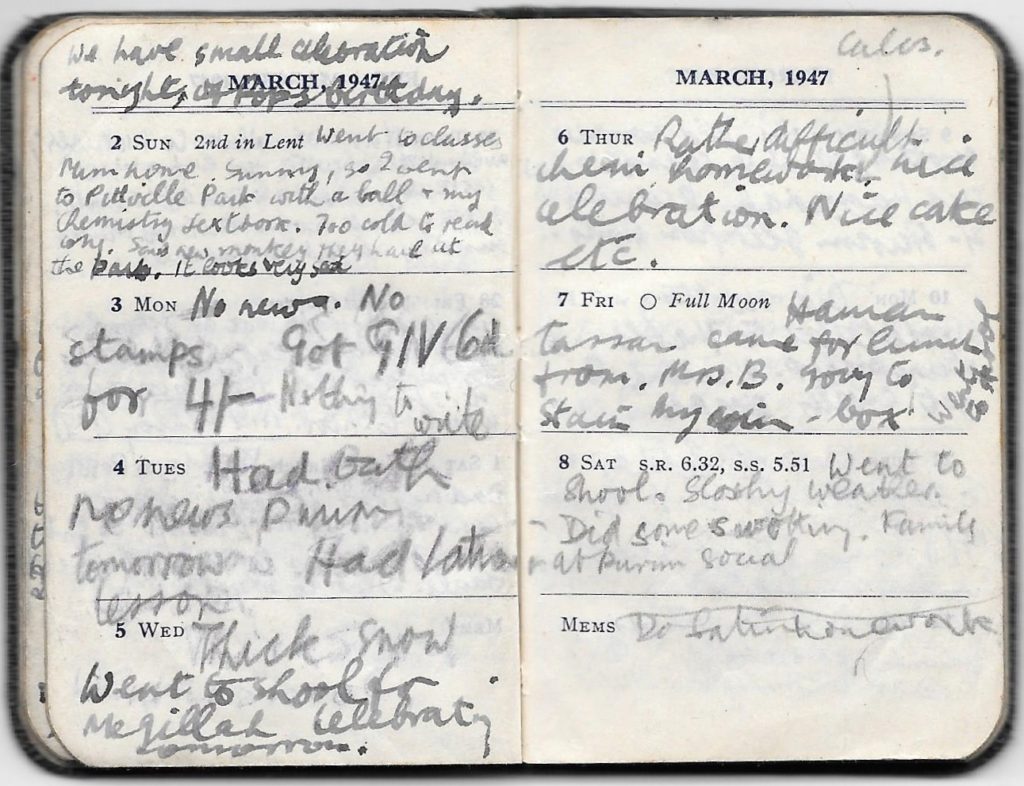 We have small celebration
tonight, of Pops birthday.
MARCH, 1947
2 SUN 2nd in Lent Went to classes
Mum home. Sunny, so I went
to Pittville Park with a ball + my
Chemistry textbook. Too cold to read
long. Saw new monkey they had at
the park. It looks very sad
3 MON No news. No
stamps. Got GIV 6d
for 4/- Nothing to write
4 TUES Had Bath
No news Purim
tomorrow Had latin
lesson
5 WED Thick Snow
Went to shool for
Megillah celebrating
tomorrow.
MARCH, 1947
6 THUR Rather difficult
chem homework. nice
celebration. Nice cake
etc.
7 FRI Full Moon Haman
Tassan came for lunch
from Mrs. B. to
Stain my - box
8 SAT S.R. 6.32, S.S. 5.51 Went to
Shool. Sloshy weather.
Did some swotting. Family
at Purim social
MEMS Do Latin homework